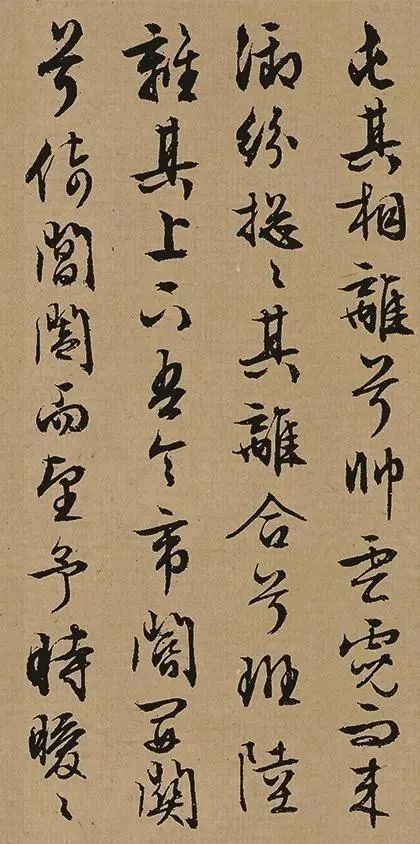 屯其相離兮帥雲霓而来
御紛摠〻其離合兮班陸
離其上下吾令帝閽開關
兮倚閶闔而望予時曖〻